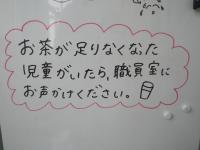 お茶が足りなくなった
児童がいたら、職員室に
お声かけください。